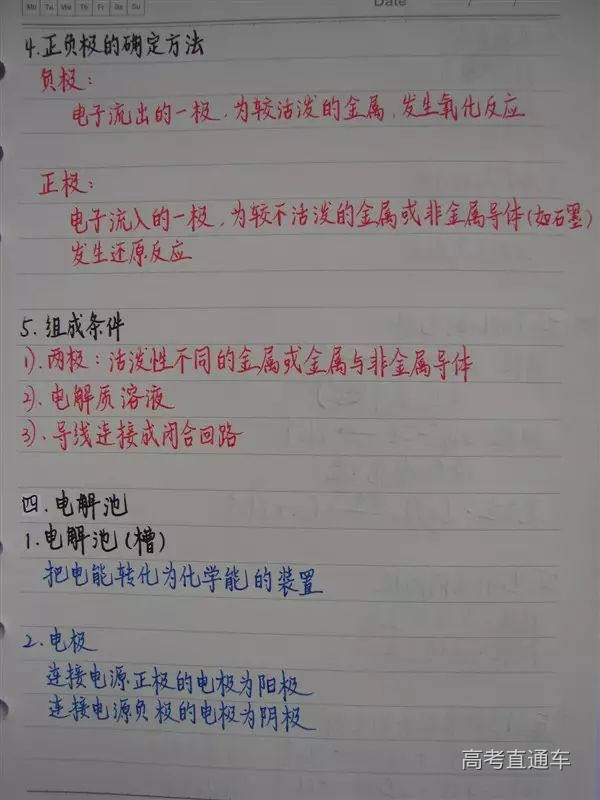 Mo Tu We Th Fr Sa Su
Date
4.正负极的确定方法
负极:
电子流出的一极,为较活泼的金属,发生氧化反应
正极:
电子流入的一极,为较不活泼的金属或非金属导体(如石墨)
发生还原反应
5.组成条件
1).两极:活泼性不同的金属或金属与非金属导体
2).电解质溶液
3).导线连接成闭合回路
四.电解池
1.电解池(槽)
把电能转化为化学能的装置
2.电极
连接电源正极的电极为阳极
连接电源负极的电极为阴极
高考直通车